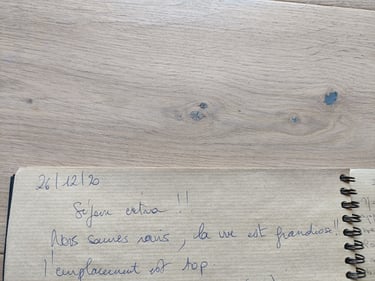 26/12/20
Séjour extra !!
Nous sommes ravis, la vue est grandiose !!
l'emplacement est top